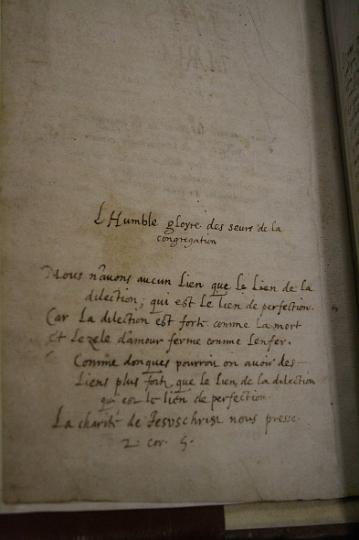 L'Humble gloyre des seurs de la
congregation
Nous n'avons aucun Lien que le Lien de la
dilection, qui est le lien de perfection.
Car La dilection est forte comme La mort
Et Le zele d'amour ferme comme L'enfer.
Comme donques pourroit on avoir des
Liens plus forts que le lien de la dilection
qui est le lien de perfection
La charité de Jesuschrist nous presse
2. cor. 5.